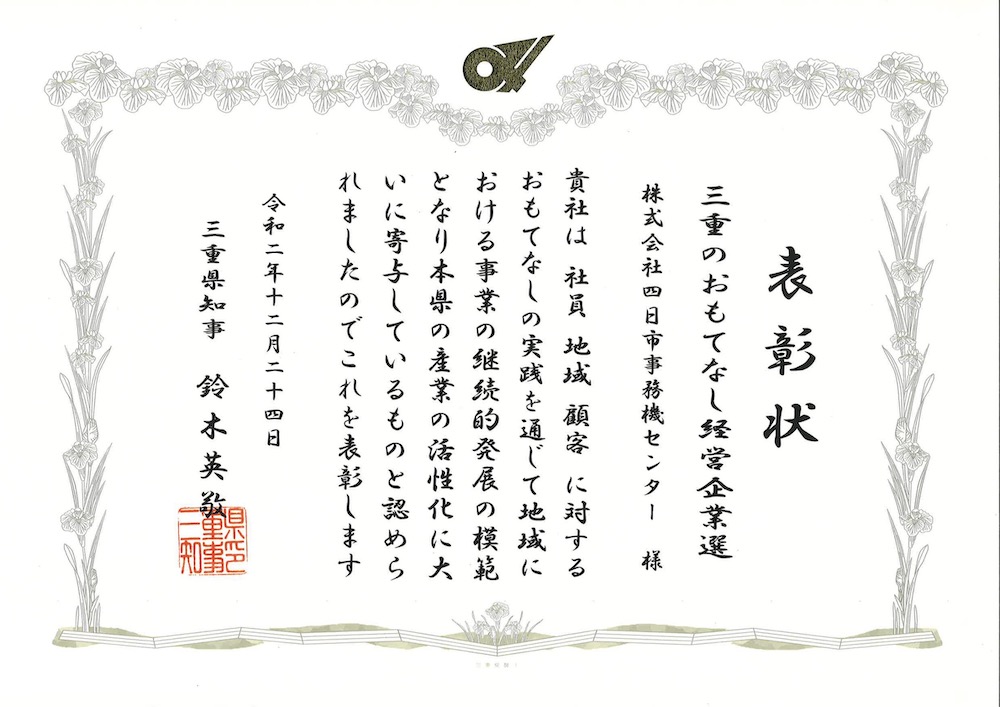 表彰状
三重のおもてなし経営企業選
株式会社四日市事務機センター 様
貴社は 社員 地域 顧客 に対する
おもてなしの実践を通じて地域に
おける事業の継続的発展の模範
となり本県の産業の活性化に大
いに寄与しているものと認めら
れましたのでこれを表彰します
令和二年十二月二十四日
三重県知事 鈴木英敬
三重県知事印